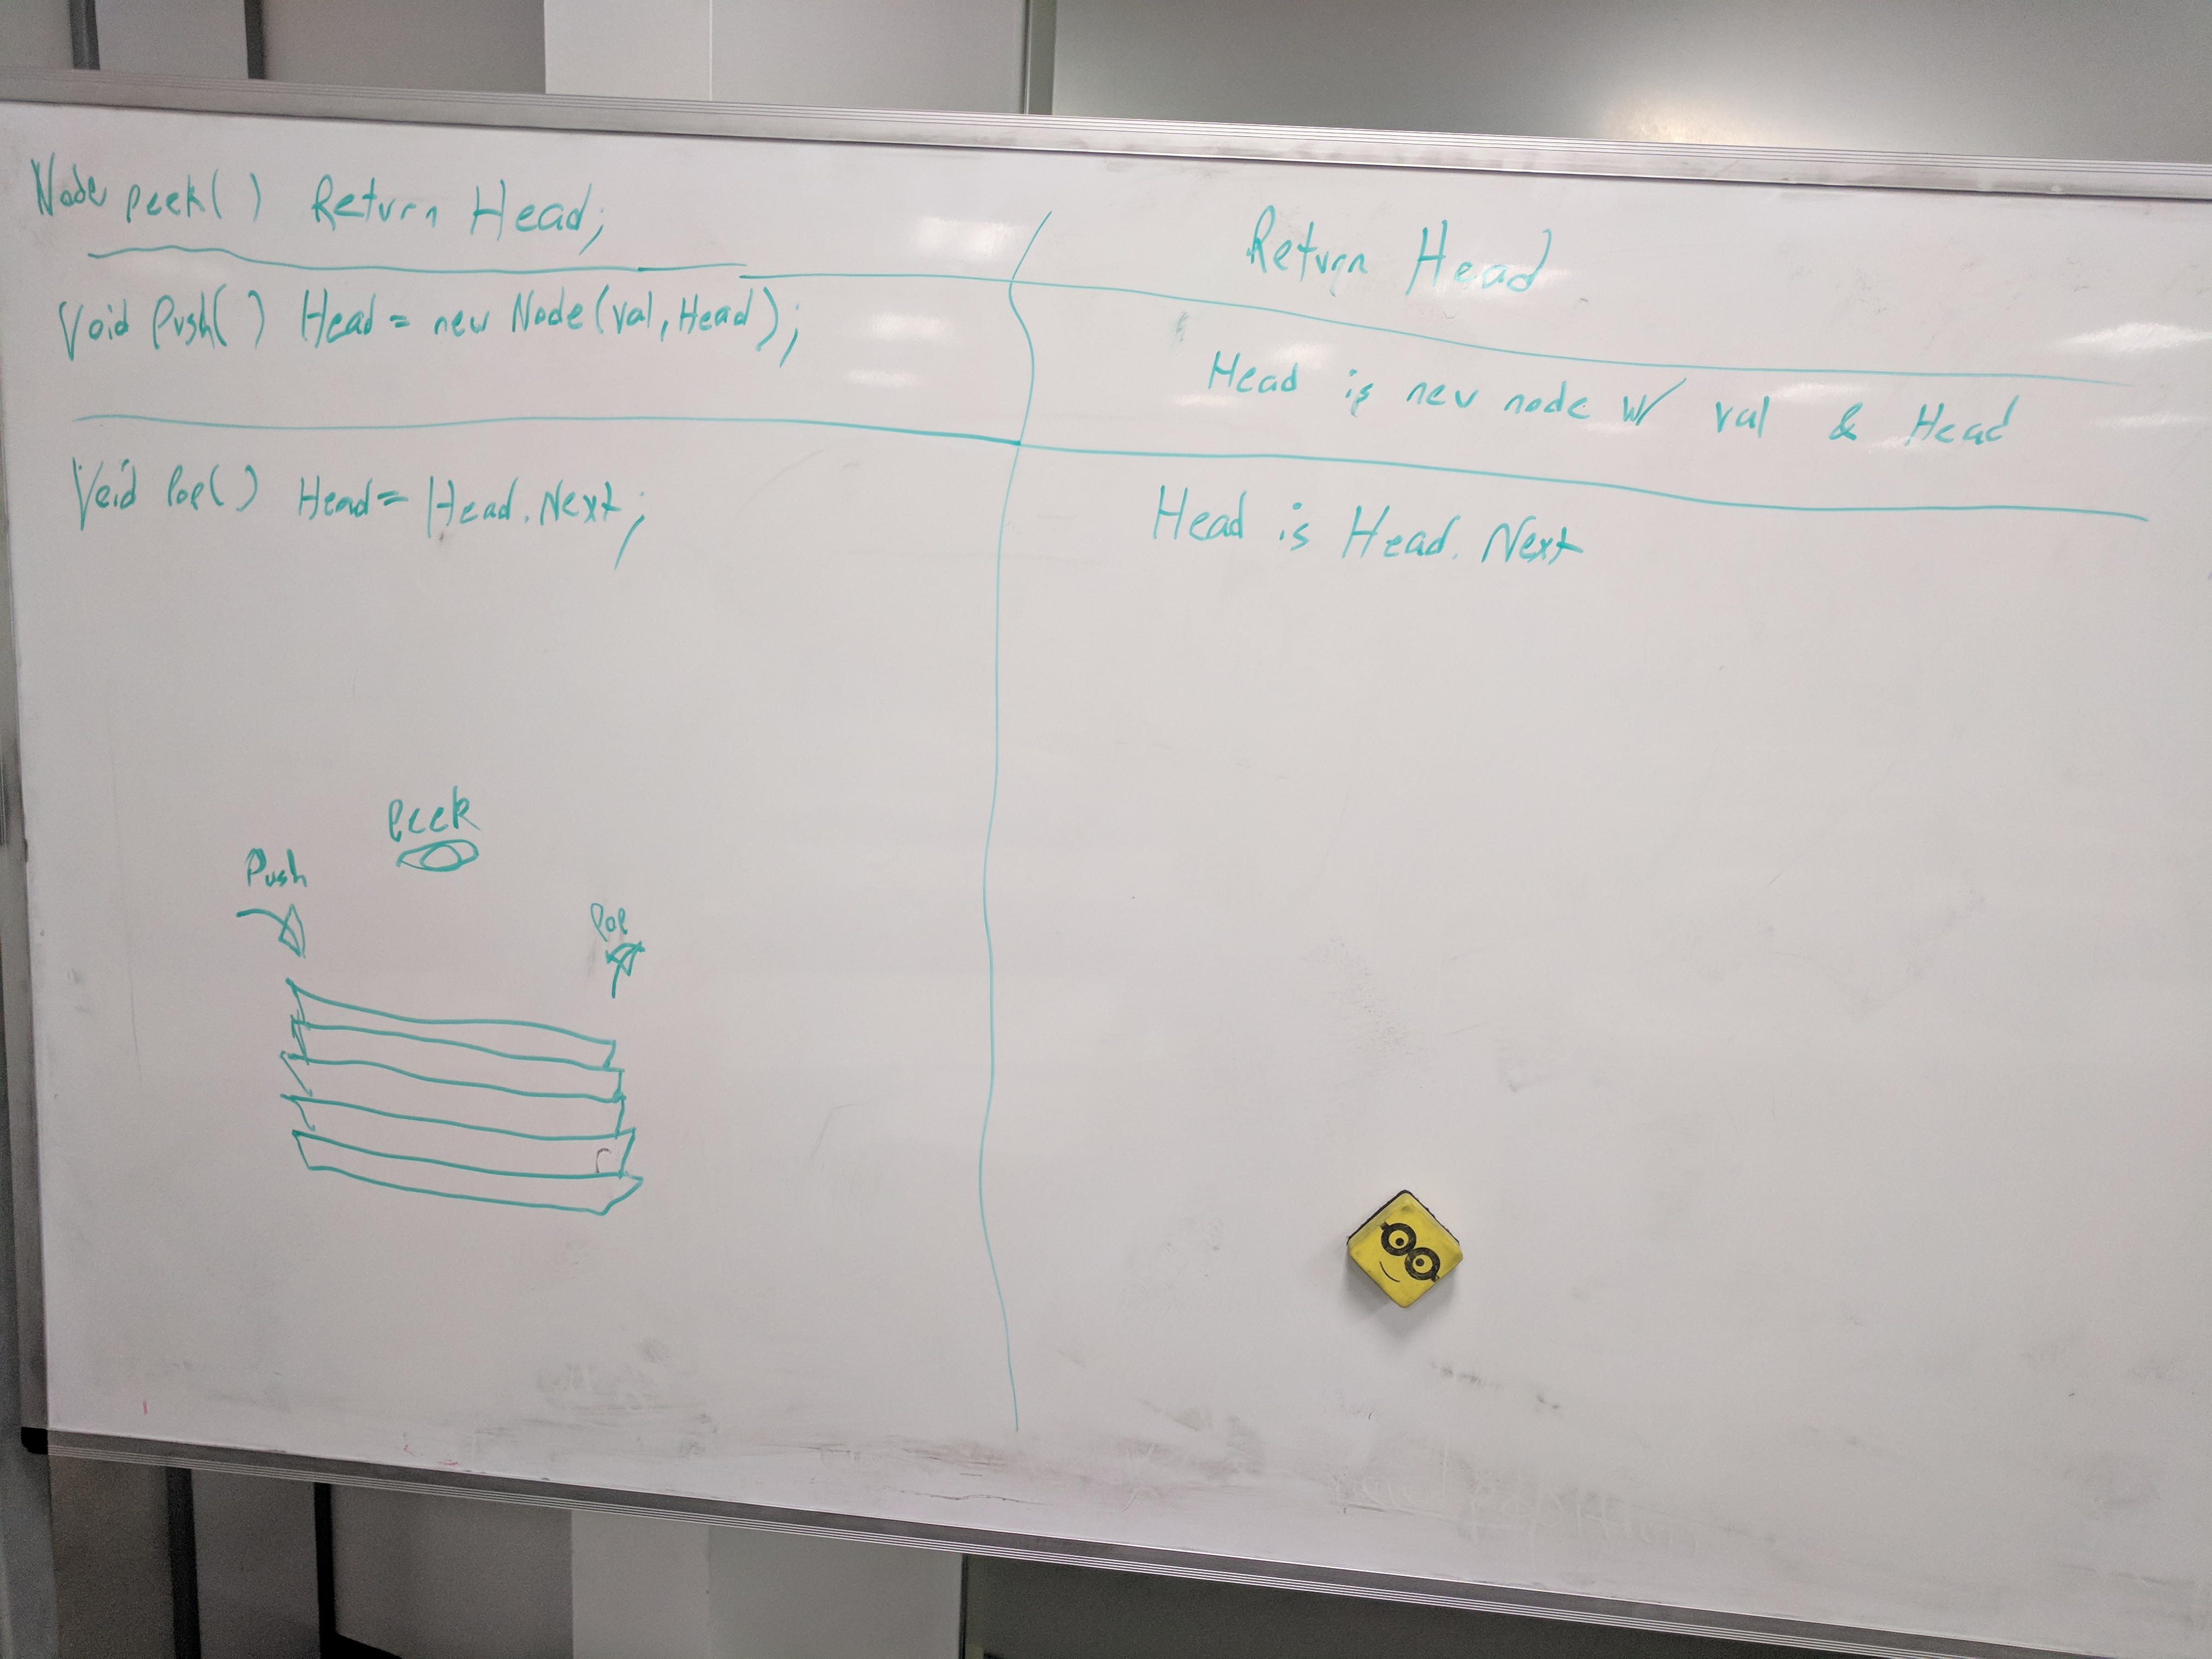 Node peek() Return Head;
Return Head
Void Push() Head = new Node(val, Head);
Head is new node w/ val & Head
Void Pop() Head = Head.Next;
Head is Head. Next
Peek
Push
Pop